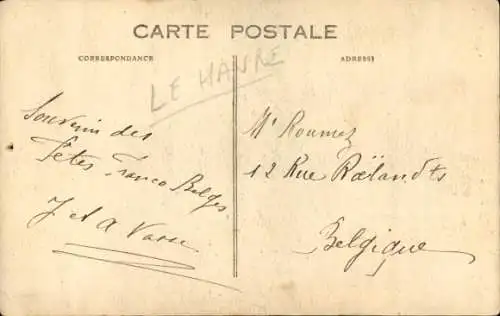 CARTE POSTALE
CORRESPONDANCE
ADRESSE
LE HAVRE
Souvenir des
Fêtes Franco Belges
J et A
Mr
12 Rue
Belgique